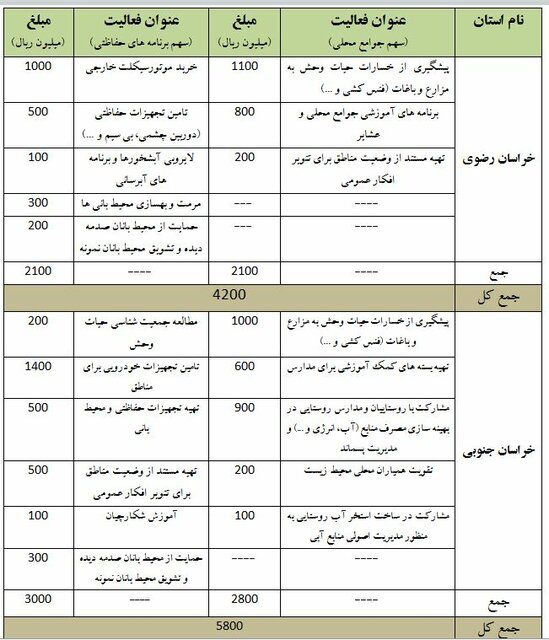 نام استان
عنوان فعالیت
(سهم جوامع محلی)
مبلغ
(میلیون ریال)
عنوان فعالیت
(سهم برنامه های حفاظتی)
مبلغ
(میلیون ریال)
خراسان رضوی
پیشگیری از خسارات حیات وحش به
مزارع و باغات (فنس کشی و ...)
1100
خرید موتورسیکلت خارجی
1000
برنامه های آموزشی جوامع محلی و
عشایر
800
تامین تجهیزات حفاظتی
(دوربین چشمی، بی سیم و ...)
500
تهیه مستند از وضعیت مناطق برای تنویر
افکار عمومی
200
لایروبی آبشخورها و برنامه
های آبرسانی
100
----
---
مرمت و بهسازی محیط بانی ها
300
----
---
حمایت از محیط بانان صدمه
دیده و تشویق محیط بانان نمونه
200
جمع
----
2100
----
2100
جمع کل
4200
خراسان جنوبی
پیشگیری از خسارات حیات وحش به مزارع
و باغات (فنس کشی و ...)
1000
مطالعه جمعیت شناسی حیات
وحش
200
تهیه بسته های کمک آموزشی برای مدارس
600
تامین تجهیزات خودرویی برای
مناطق
1400
مشارکت با روستاییان و مدارس روستایی در
بهینه سازی مصرف منابع (آب، انرژی و ...) و
مدیریت پسماند
900
تهیه تجهیزات حفاظتی و محیط
بانی
500
تقویت همیاران محلی محیط زیست
200
تهیه مستند از وضعیت مناطق
برای تنویر افکار عمومی
500
مشارکت در ساخت استخر آب روستایی به
منظور مدیریت اصولی منابع آبی
100
آموزش شکارچیان
100
----
----
حمایت از محیط بانان صدمه دیده
و تشویق محیط بانان نمونه
300
جمع
----
2800
----
3000
جمع کل
5800